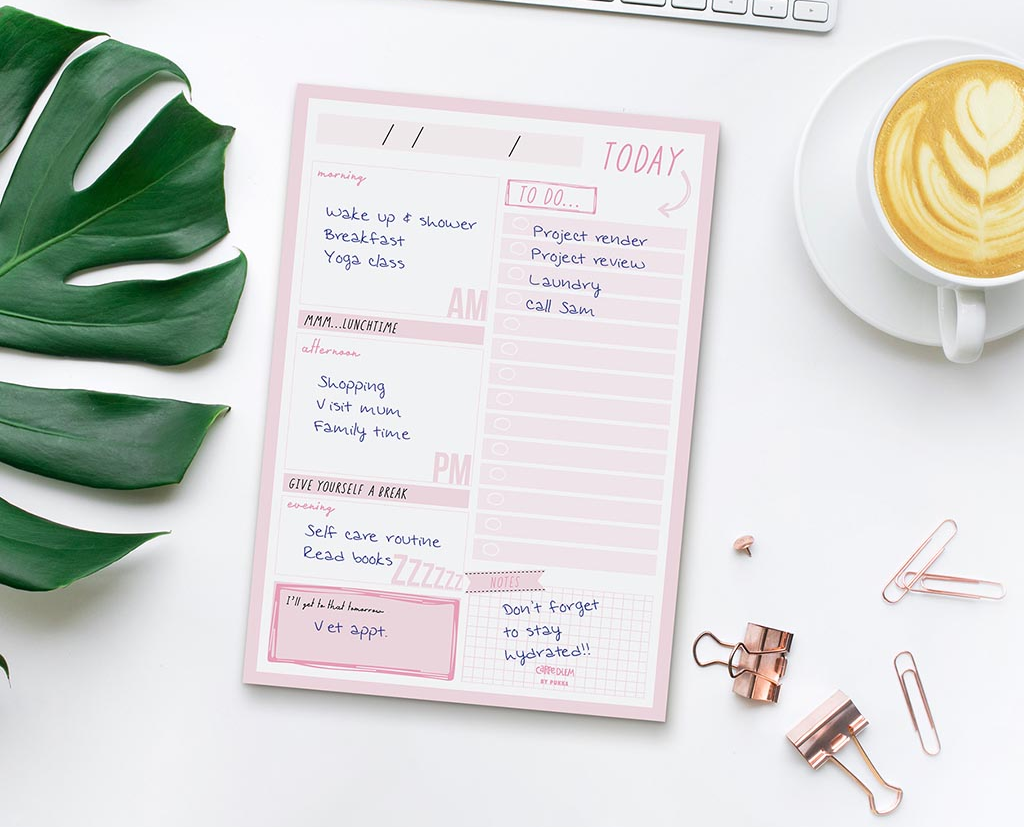 / / /
TODAY
morning
Wake up & shower
Breakfast
Yoga class
AM
MMM...LUNCHTIME
afternoon
Shopping
Visit mum
Family time
PM
GIVE YOURSELF A BREAK
evening
Self care routine
Read books
ZZZZZZ
I'll get to that tomorrow
Vet appt.
TO DO...
Project render
Project review
Laundry
Call Sam
NOTES
Don't forget
to stay
hydrated!!
CARPE DIEM
BY PUKKA